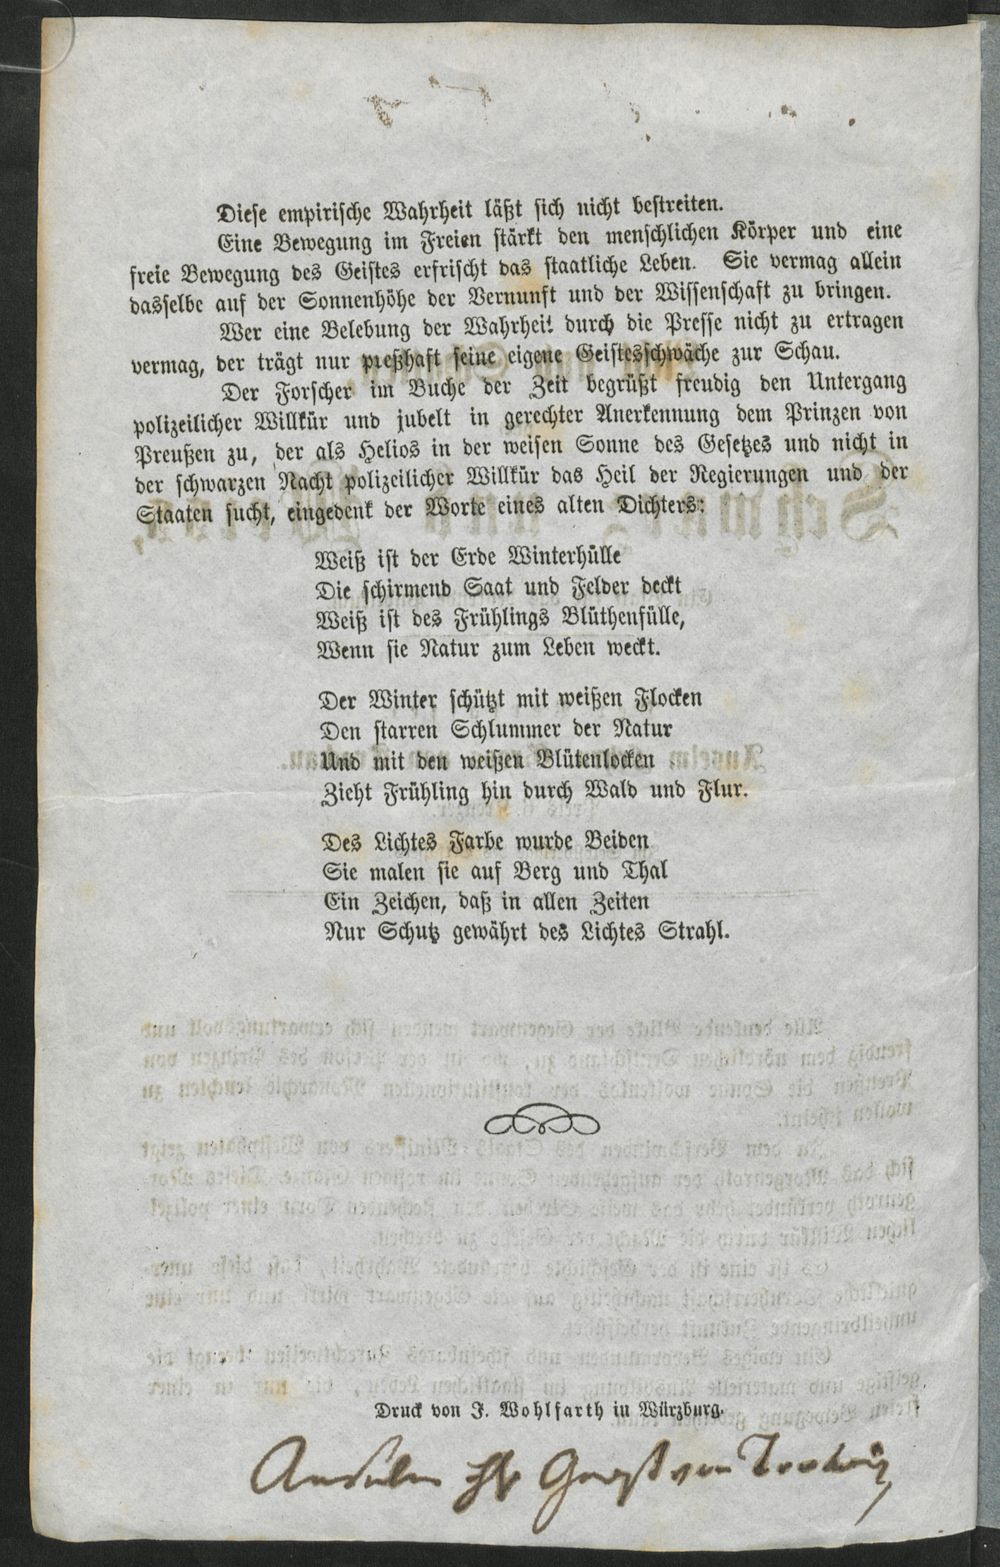 Diese empirische Wahrheit läßt sich nicht bestreiten.
Eine Bewegung im Freien stärkt den menschlichen Körper und eine
freie Bewegung des Geistes erfrischt das staatliche Leben. Sie vermag allein
dasselbe auf der Sonnenhöhe der Vernunft und der Wissenschaft zu bringen.
Wer eine Belebung der Wahrheit durch die Presse nicht zu ertragen
vermag, der trägt nur preßhaft seine eigene Geistesschwäche zur Schau.
Der Forscher im Buche der Zeit begrüßt freudig den Untergang
polizeilicher Willkür und jubelt in gerechter Anerkennung dem Prinzen von
Preußen zu, der als Helios in der weisen Sonne des Gesetzes und nicht in
der schwarzen Nacht polizeilicher Willkür das Heil der Regierungen und der
Staaten sucht, eingedenk der Worte eines alten Dichters:
Weiß ist der Erde Winterhülle
Die schirmend Saat und Felder deckt
Weiß ist des Frühlings Blüthenfülle,
Wenn sie Natur zum Leben weckt.
Der Winter schützt mit weißen Flocken
Den starren Schlummer der Natur
Und mit den weißen Blütenlocken
Zieht Frühling hin durch Wald und Flur.
Des Lichtes Farbe wurde Beiden
Sie malen sie auf Berg und Thal
Ein Zeichen, daß in allen Zeiten
Nur Schutz gewährt des Lichtes Strahl.
Druck von J. Wohlfarth in Würzburg.
Anselm von